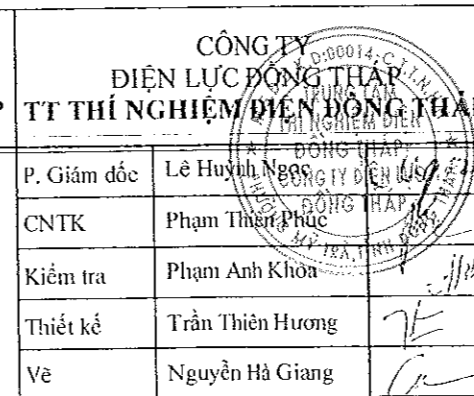 CÔNG TY
ĐIỆN LỰC ĐỒNG THÁP
P TT THÍ NGHIỆM ĐIỆN ĐỒNG THÁP
P. Giám đốc Lê Huỳnh Ngọc
CNTK Phạm Thiên Phúc
Kiểm tra Phạm Anh Khoa
Thiết kế Trần Thiên Hương
Vẽ Nguyễn Hà Giang
TRUNG TÂM
THÍ NGHIỆM ĐIỆN
ĐỒNG THÁP
CÔNG TY ĐIỆN LỰC
ĐỒNG THÁP